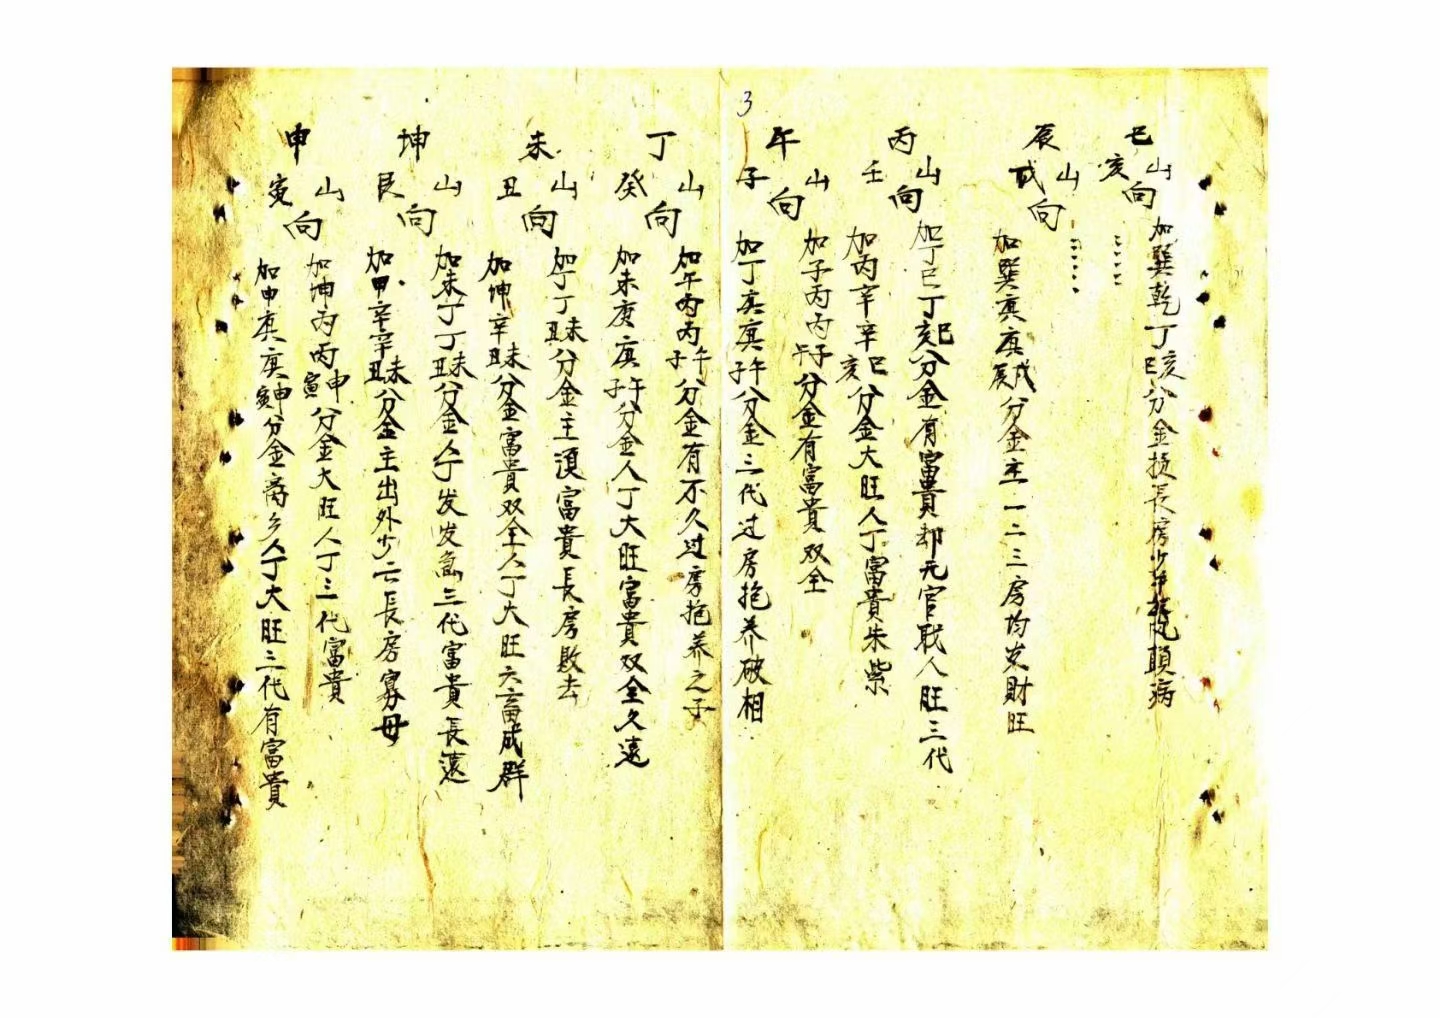 3
巳山亥向
加巽乾丁亥巳分金损長房少
病
辰山戌向
加巽庚庚戌辰分金主一二三房均发財旺
丙山壬向
加丁巳丁巳亥分金有富貴却元官职人旺三代
加丙辛辛巳亥分金大旺人丁富貴朱紫
午山子向
加子丙丙子午分金有富貴双全
加丁庚庚午子分金三代过房抱养破相
丁山癸向
加午丙丙午子分金有不久过房抱养之子
加未庚庚午子分金人丁大旺富貴双全久遠
未山丑向
加丁丁未丑分金主須富貴長房敗去
加坤辛未丑分金富貴双全人丁大旺六畜成群
坤山艮向
加未丁丁未丑分金人丁发发急三代富貴長遠
加甲辛辛未丑分金主出外少亡長房寡母
申山寅向
加坤丙丙申寅分金大旺人丁三代富貴
加申庚庚申寅分金离乡人丁大旺三代有富貴